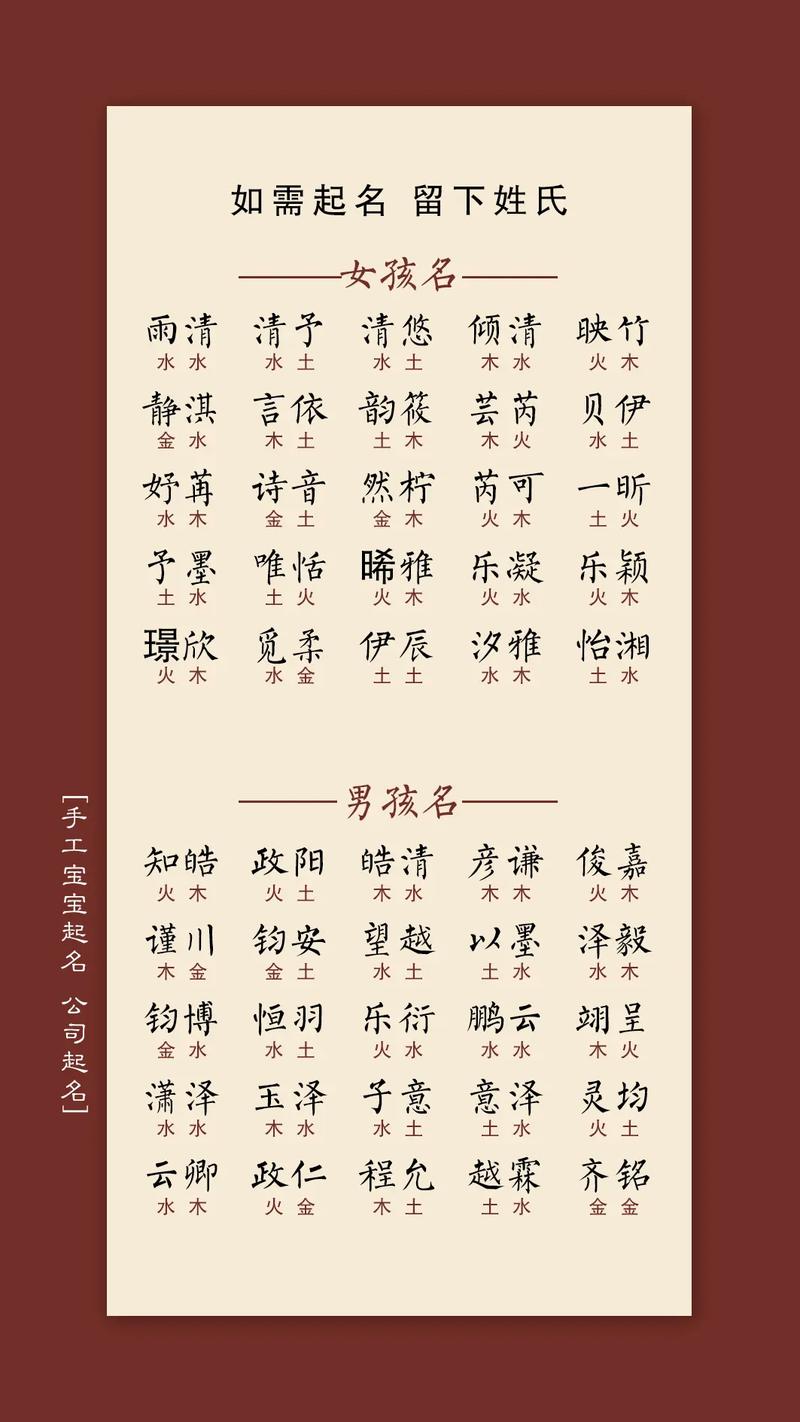 如需起名 留下姓氏
女孩名
雨清 清予 清悠 倾清 映竹
水水 水土 水土 木水 火木
静淇 言依 韵筱 芸芮 贝伊
金水 木土 土木 木火 水土
妤苒 诗音 然柠 芮可 一昕
水木 金土 金木 火木 土火
予墨 唯恬 晞雅 乐凝 乐颖
土水 土火 火木 火水 火木
璟欣 觅柔 伊辰 汐雅 怡湘
火木 水金 土土 水木 土水
男孩名
知皓 政阳 皓清 彦谦 俊嘉
火木 火土 木水 木木 火木
谨川 钧安 望越 以墨 泽毅
木金 金土 水土 土水 水木
钧博 恒羽 乐衍 鹏云 翊呈
金水 水土 火水 水水 木火
潇泽 玉泽 子意 意泽 灵均
水水 木水 水土 土水 火土
云卿 政仁 程允 越霖 齐铭
水木 火金 木土 土水 金金
[手工宝宝起名 公司起名]